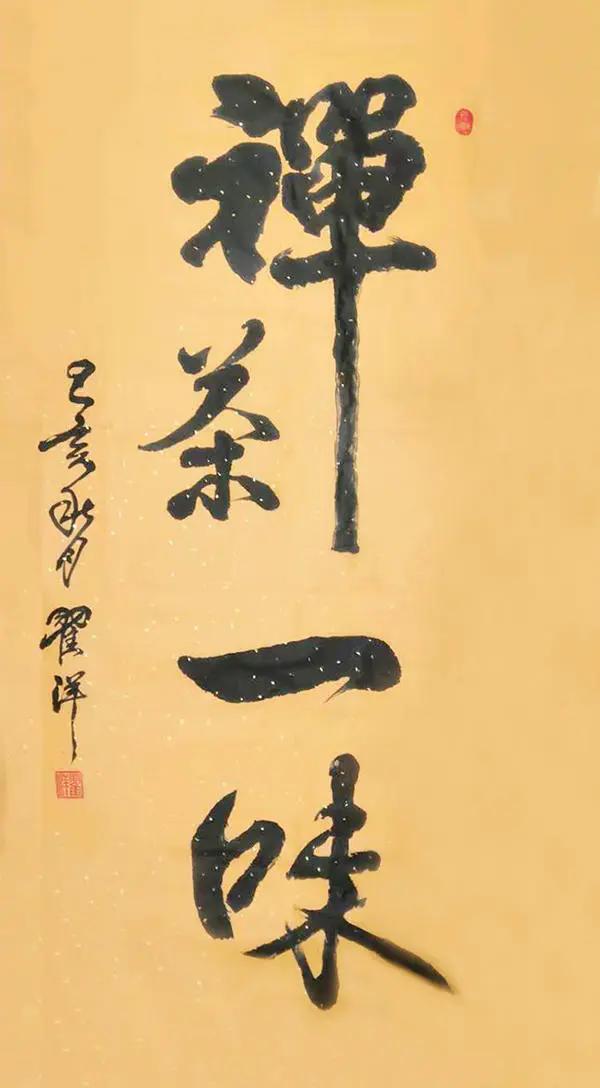 禪茶一味
己亥秋月 翟洋